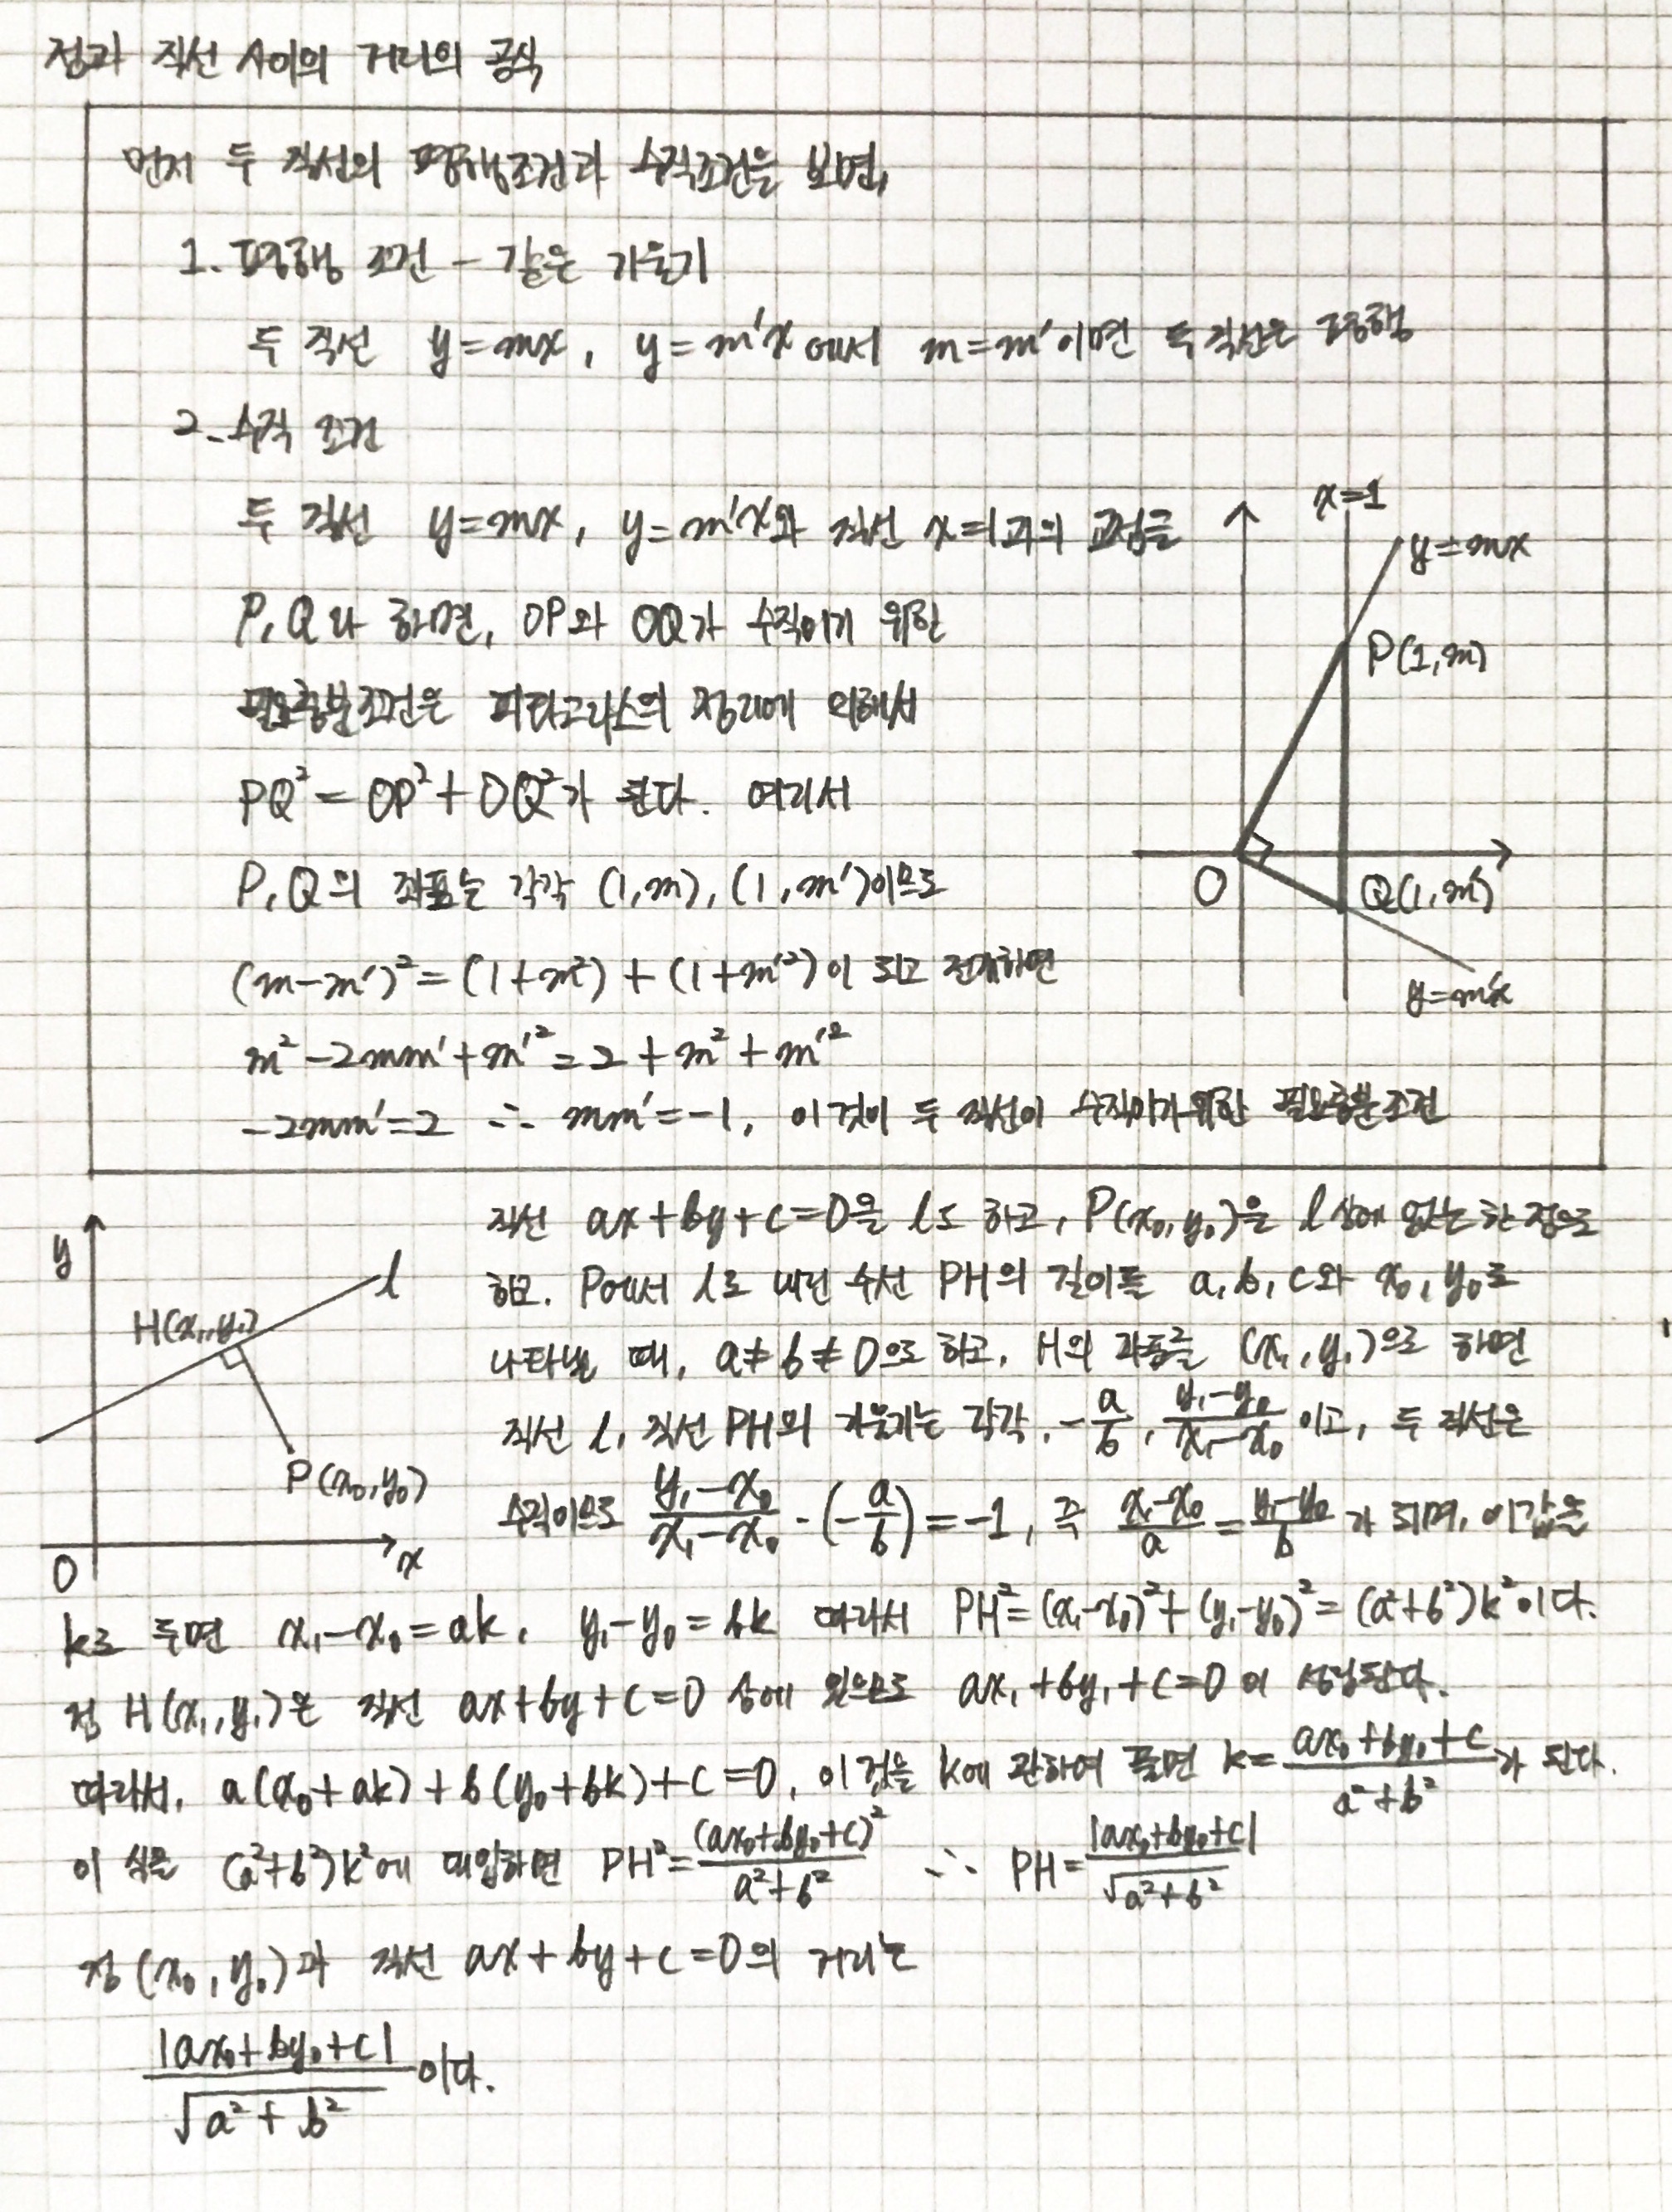 점과 직선 사이의 거리의 공식
먼저 두 직선의 평행조건과 수직조건을 보면,
1. 평행 조건 - 같은 기울기
두 직선 y=mx, y=m'x에서 m=m'이면 두 직선은 평행
2. 수직 조건
두 직선 y=mx, y=m'x와 직선 x=1과의 교점을
P, Q라 하면, OP와 OQ가 수직이기 위한
필요충분조건은 피타고라스의 정리에 의해서
PQ²=OP²+OQ²가 된다. 여기서
P, Q의 좌표는 각각 (1,m), (1,m')이므로
(m-m')²=(1+m²)+(1+m'²)이 되고 전개하면
m²-2mm'+m'²=2+m²+m'²
-2mm'=2 ∴ mm'=-1, 이것이 두 직선이 수직이기 위한 필요충분조건
x=1
y=mx
P(1,m)
O
Q(1,m')
y=m'x
y
l
H(x₁,y₁)
P(x₀,y₀)
O
x
직선 ax+by+c=0을 l로 하고, P(x₀,y₀)을 l상에 없는 한 점으로
하고. P에서 l로 내린 수선 PH의 길이를 a,b,c와 x₀,y₀로
나타낼 때, a≠b≠0으로 하고, H의 좌표를 (x₁,y₁)으로 하면
직선 l, 직선 PH의 기울기는 각각, -a/b, (y₁-y₀)/(x₁-x₀) 이고, 두 직선은
수직이므로 (y₁-x₀)/(x₁-x₀)·(-a/b)=-1, 즉 (x₁-x₀)/a=(y₁-y₀)/b가 되며, 이 값을
k로 두면 x₁-x₀=ak, y₁-y₀=bk 따라서 PH²=(x₁-x₀)²+(y₁-y₀)²=(a²+b²)k²이다.
점 H(x₁,y₁)은 직선 ax+by+c=0 상에 있으므로 ax₁+by₁+c=0이 성립된다.
따라서, a(x₀+ak)+b(y₀+bk)+c=0, 이것을 k에 관하여 풀면 k=(ax₀+by₀+c)/(a²+b²)가 된다.
이 식을 (a²+b²)k²에 대입하면 PH²=(ax₀+by₀+c)²/(a²+b²) ∴ PH=|ax₀+by₀+c|/√(a²+b²)
점(x₀,y₀)과 직선 ax+by+c=0의 거리는
|ax₀+by₀+c|/√(a²+b²) 이다.